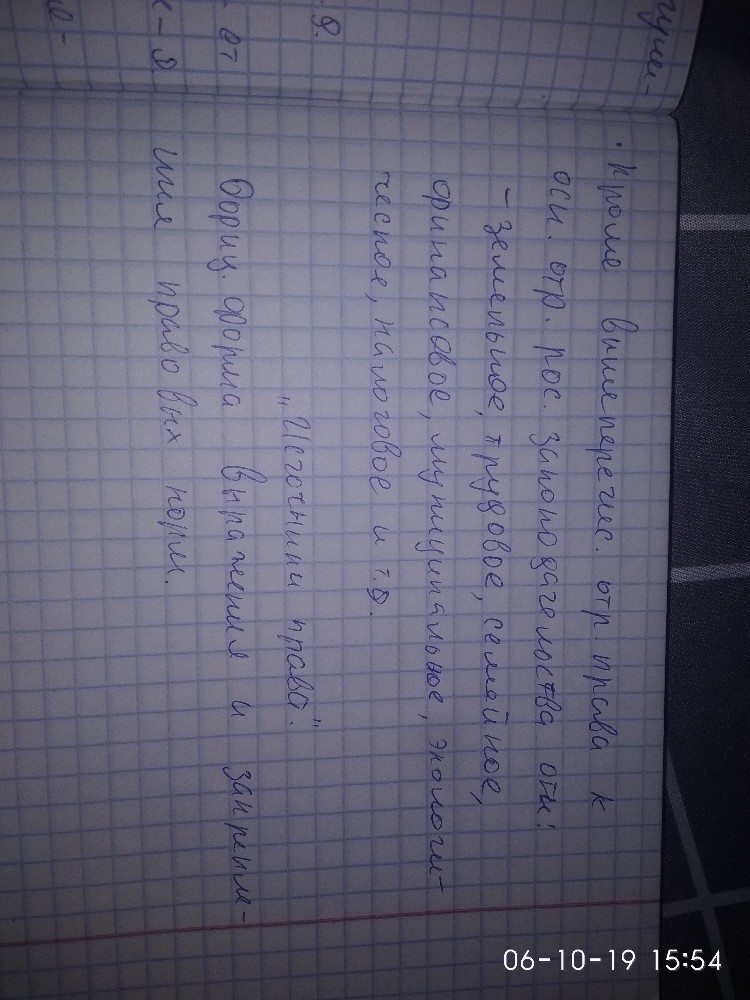 · Кроме вышеперечис. отр. права к
осн. отр. рос. законодательства отн:
- земельное, трудовое, семейное,
финансовое, муниципальное, экологи-
ческое, налоговое и т.д.
„Источники права".
Юриц. форма выражения и закрепле-
ния правовых норм.
06-10-19 15:54